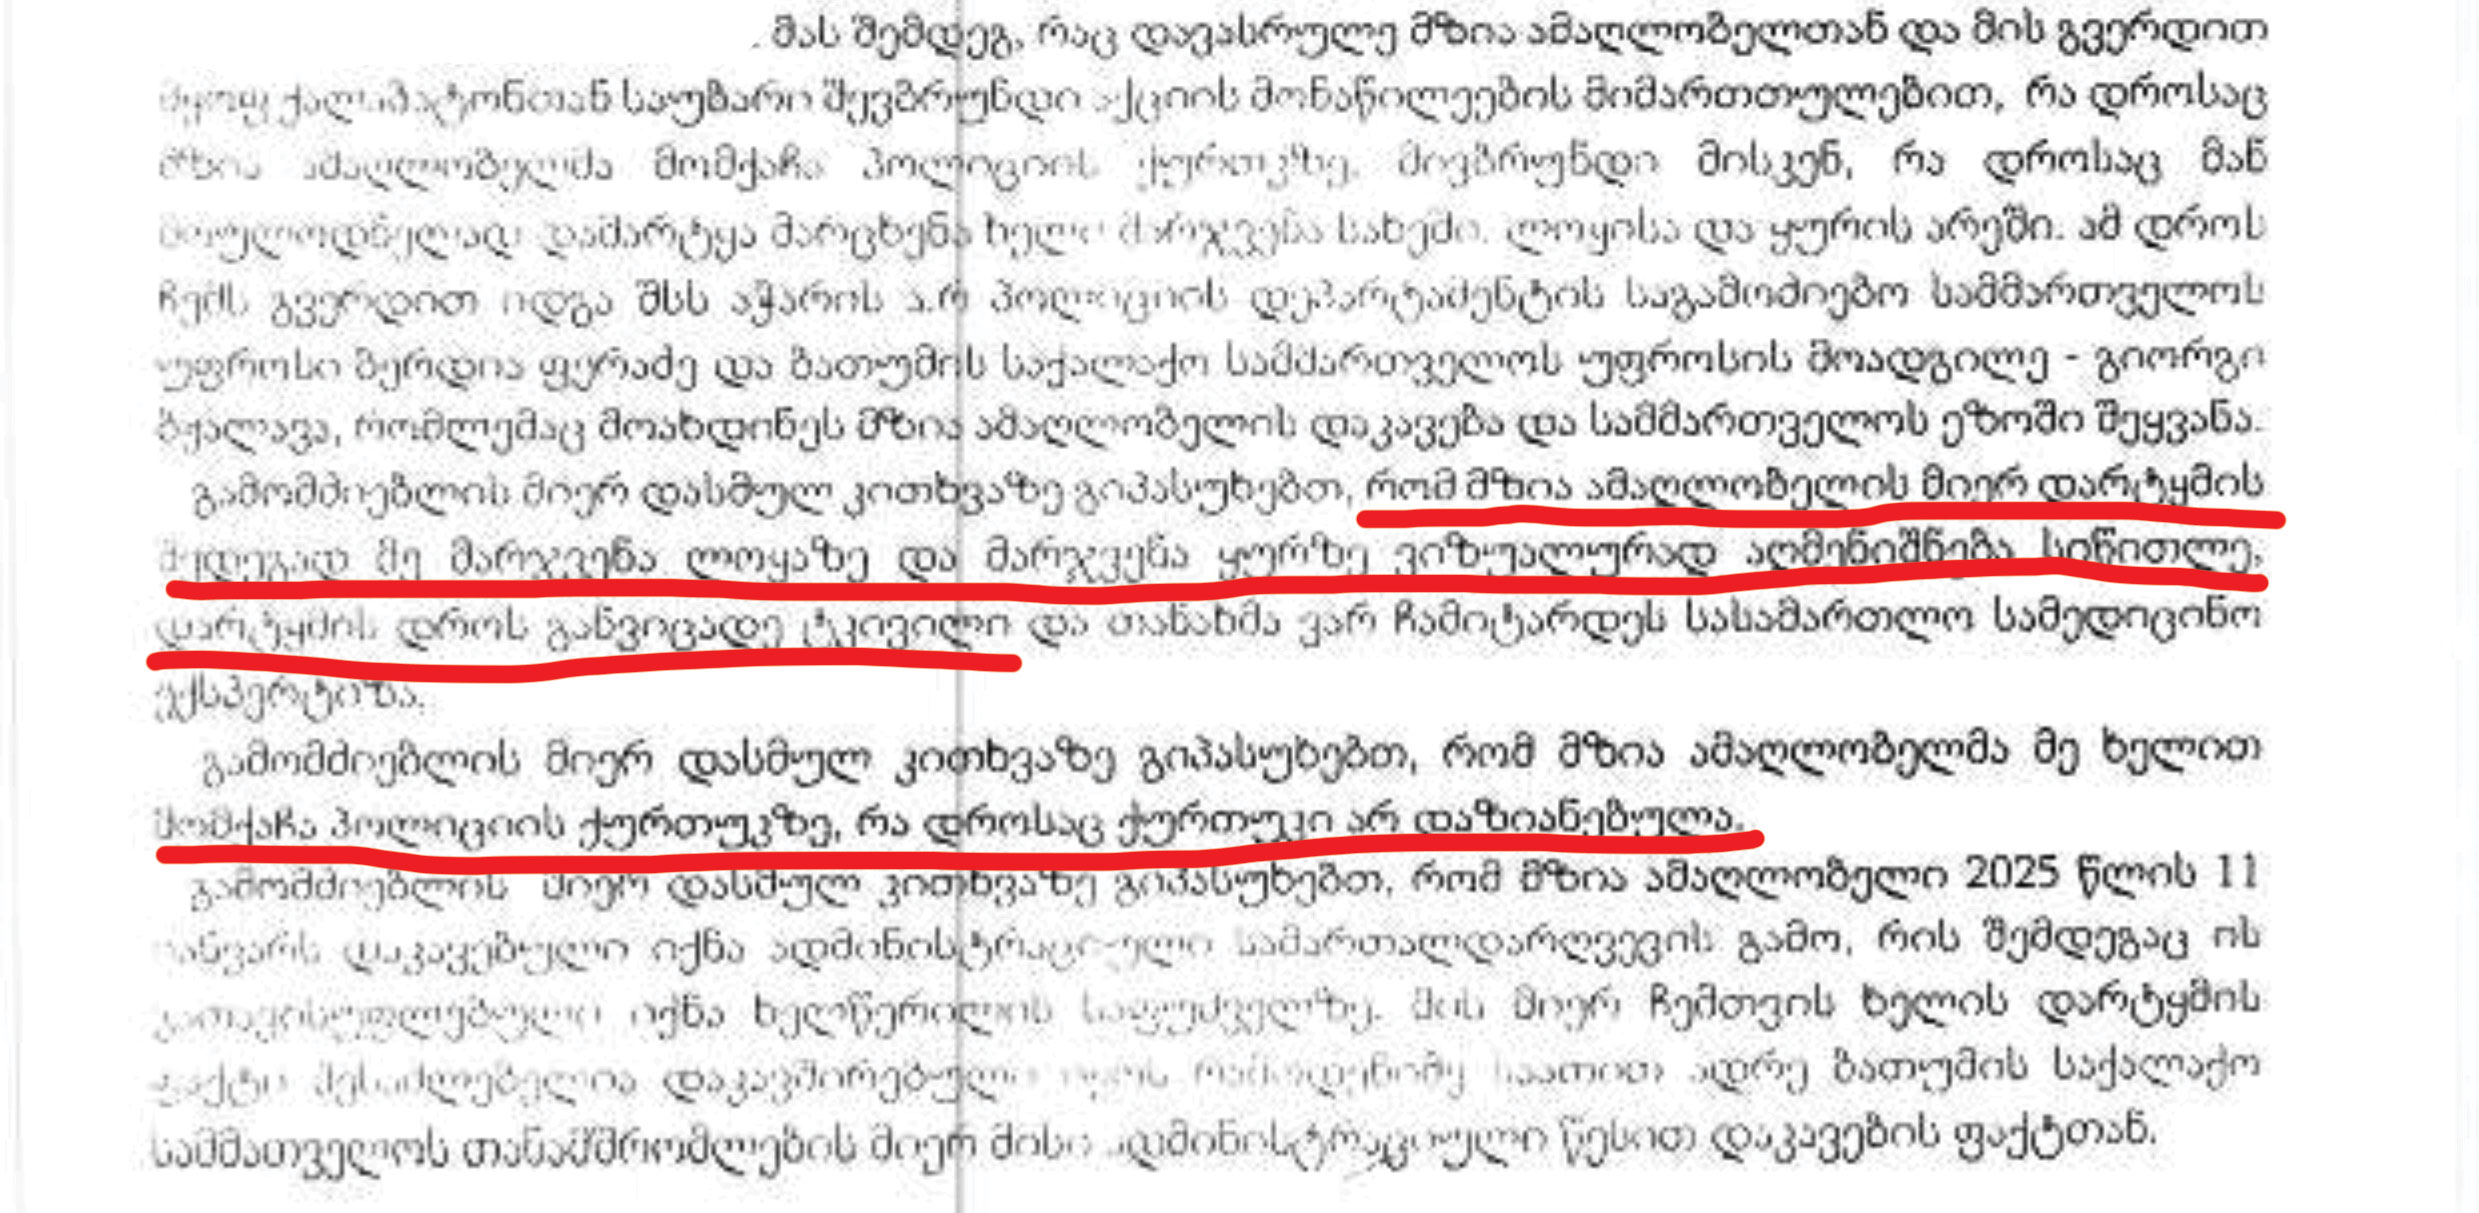 მას შემდეგ, რაც დავასრულე მზია ამაღლობელთან და მის გვერდით
მყოფ ქალბატონთან საუბარი შევბრუნდი აქციის მონაწილეების მიმართთულებით, რა დროსაც
მზია ამაღლობელმა მომქაჩა პოლიციის ქურთუკზე, მივბრუნდი მისკენ, რა დროსაც მან
მოულოდნელად დამარტყა მარცხენა ხელი მარჯვენა სახეში, ლოყისა და ყურის არეში. ამ დროს
ჩემს გვერდით იდგა შსს აჭარის ა.რ პოლიციის დეპარტამენტის საგამოძიებო სამმართველოს
უფროსი ბერდია ფურაძე და ბათუმის საქალაქო სამმართველოს უფროსის მოადგილე - გიორგი
ბჟალავა, რომლემაც მოახდინეს მზია ამაღლობელის დაკავება და სამმართველოს ეზოში შეყვანა.
გამომძიებლის მიერ დასმულ კითხვაზე გიპასუხებთ, რომ მზია ამაღლობელის მიერ დარტყმის
შედეგად მე მარჯვენა ლოყაზე და მარჯვენა ყურზე ვიზუალურად აღმენიშნება სიწითლე,
დარტყმის დროს განვიცადე ტკივილი და თანახმა ვარ ჩამიტარდეს სასამართლო სამედიცინო
ექსპერტიზა.
გამომძიებლის მიერ დასმულ კითხვაზე გიპასუხებთ, რომ მზია ამაღლობელმა მე ხელით
მომქაჩა პოლიციის ქურთუკზე, რა დროსაც ქურთუკი არ დაზიანებულა.
გამომძიებლის მიერ დასმულ კითხვაზე გიპასუხებთ, რომ მზია ამაღლობელი 2025 წლის 11
იანვარს დაკავებული იქნა ადმინისტრაციული სამართალდარღვევის გამო, რის შემდეგაც ის
გათავისუფლებული იქნა ხელწერილის საფუძველზე. მის მიერ ჩემთვის ხელის დარტყმის
ფაქტი შესაძლებელია დაკავშირებული იყოს რამოდენიმე საათით ადრე ბათუმის საქალაქო
სამმათველოს თანამშრომლების მიერ მისი ადმინისტრაციული წესით დაკავების ფაქტთან.